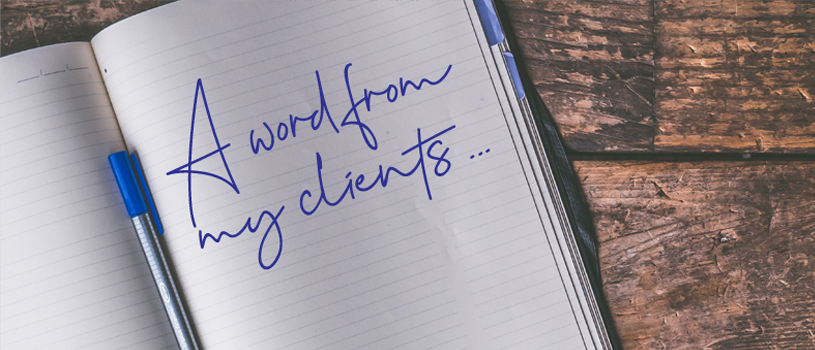 A word from
my clients...